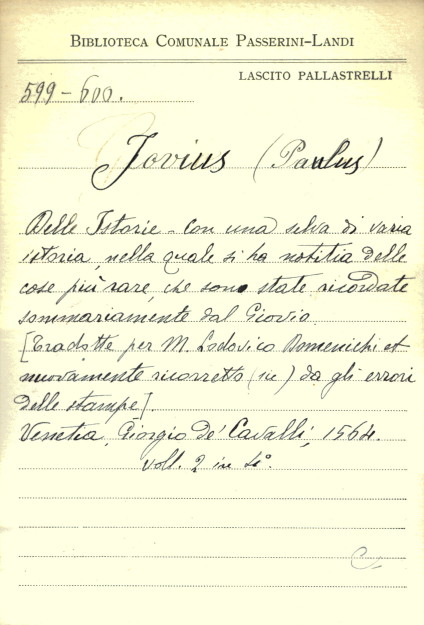 BIBLIOTECA COMUNALE PASSERINI-LANDI
LASCITO PALLASTRELLI
599-600.
Jovius (Paulus)
Delle Istorie - Con una selva di varia
istoria, nella quale si ha notitia delle
cose più rare, che sono state ricordate
sommariamente dal Giovio
[Tradotte per M. Lodovico Domenichi et
nuovamente ricorretto (sic) da gli errori
delle stampe].
Venetia, Giorgio de' Cavalli, 1564.
voll. 2 in 4°.
C